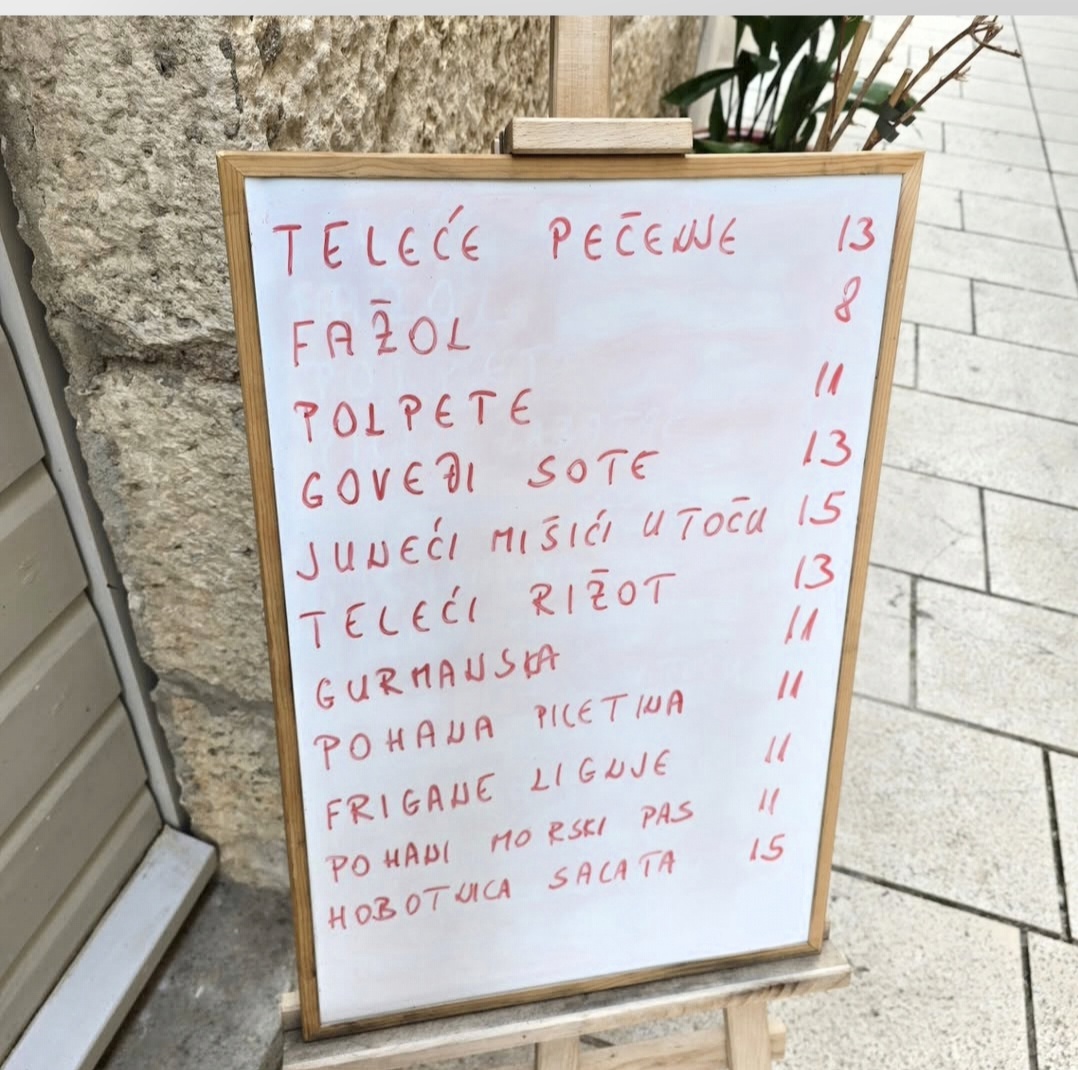 TELEĆE PEČENJE 13
FAŽOL 8
POLPETE 11
GOVEĐI SOTE 13
JUNEĆI MIŠIĆI U TOĆU 15
TELEĆI RIŽOT 13
GURMANSKA 11
POHANA PILETINA 11
FRIGANE LIGNJE 11
POHANI MORSKI PAS 11
HOBOTNICA SALATA 15